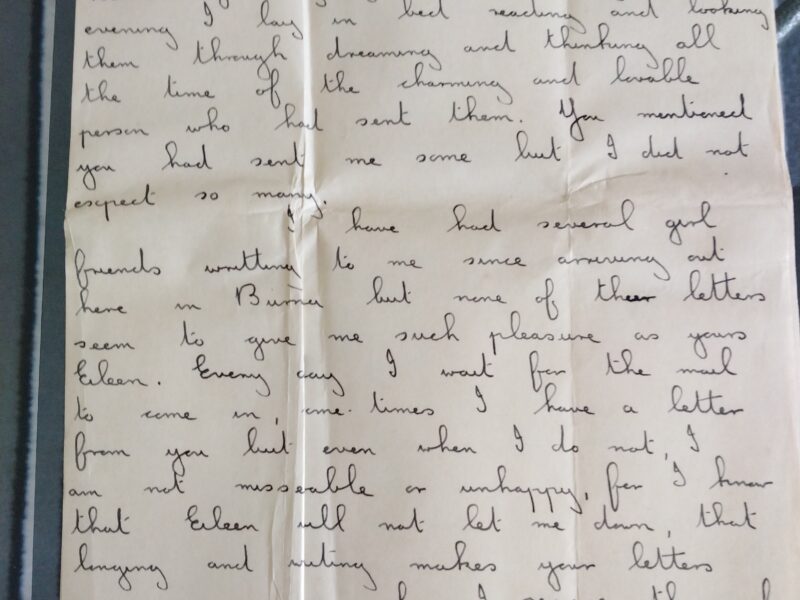 evening I lay in bed reading and looking
them through dreaming and thinking all
the time of the charming and lovable
person who had sent them. You mentioned
you had sent me some but I did not
expect so many.
I have had several girl
friends writting to me since arriving out
here in Burma but none of their letters
seem to give me such pleasure as yours
Eileen. Every day I wait for the mail
to come in, times I have a letter
from you but even when I do not, I
am not misseable or unhappy, for I know
that Eileen will not let me down, that
longing and writing makes your letters